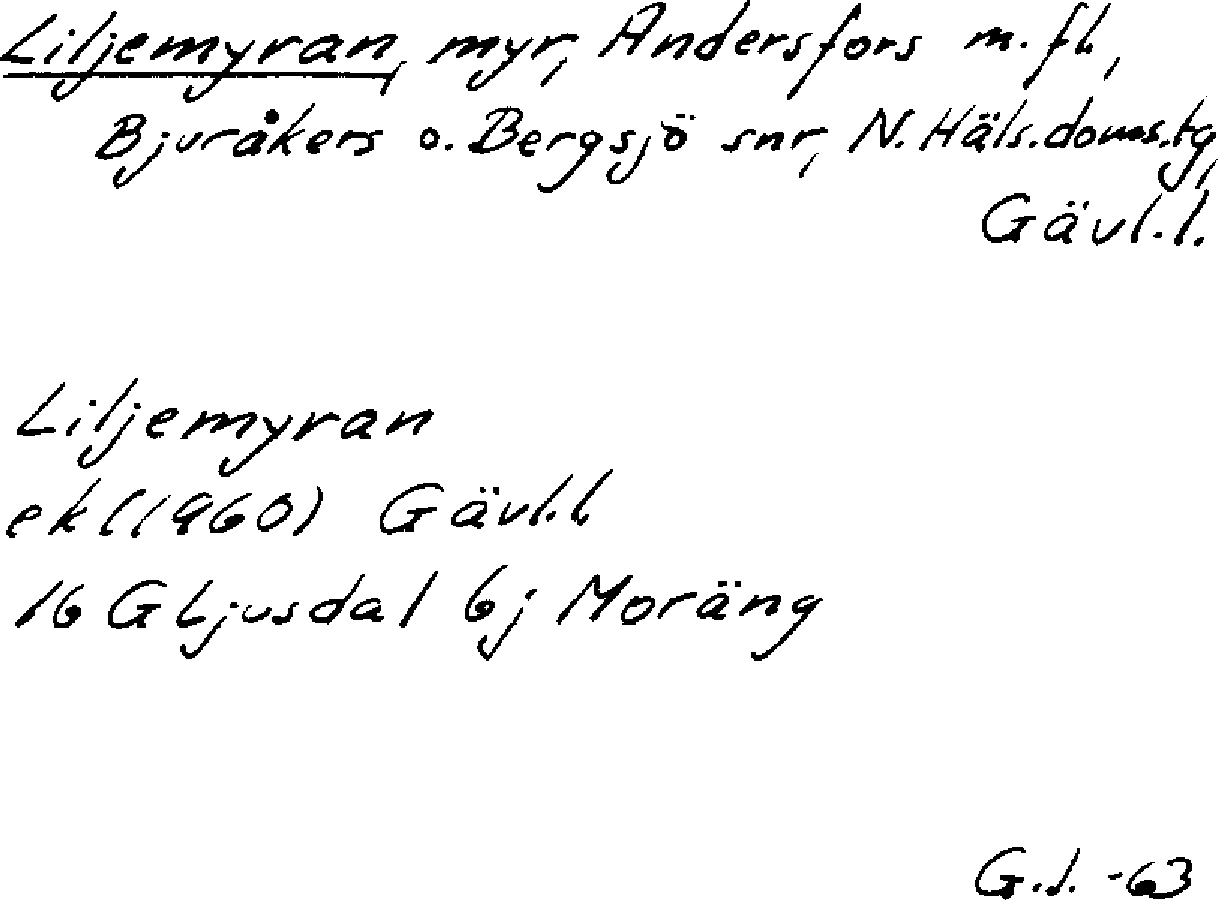 Liljemyran, myr, Andersfors m.fl.,
Bjuråkers o. Bergsjö snr, N. Häls. doms.tg,
Gävl.l.
Liljemyran
ek (1960) Gävl.l.
16 G Ljusdal 6j Moräng
G.l. -63